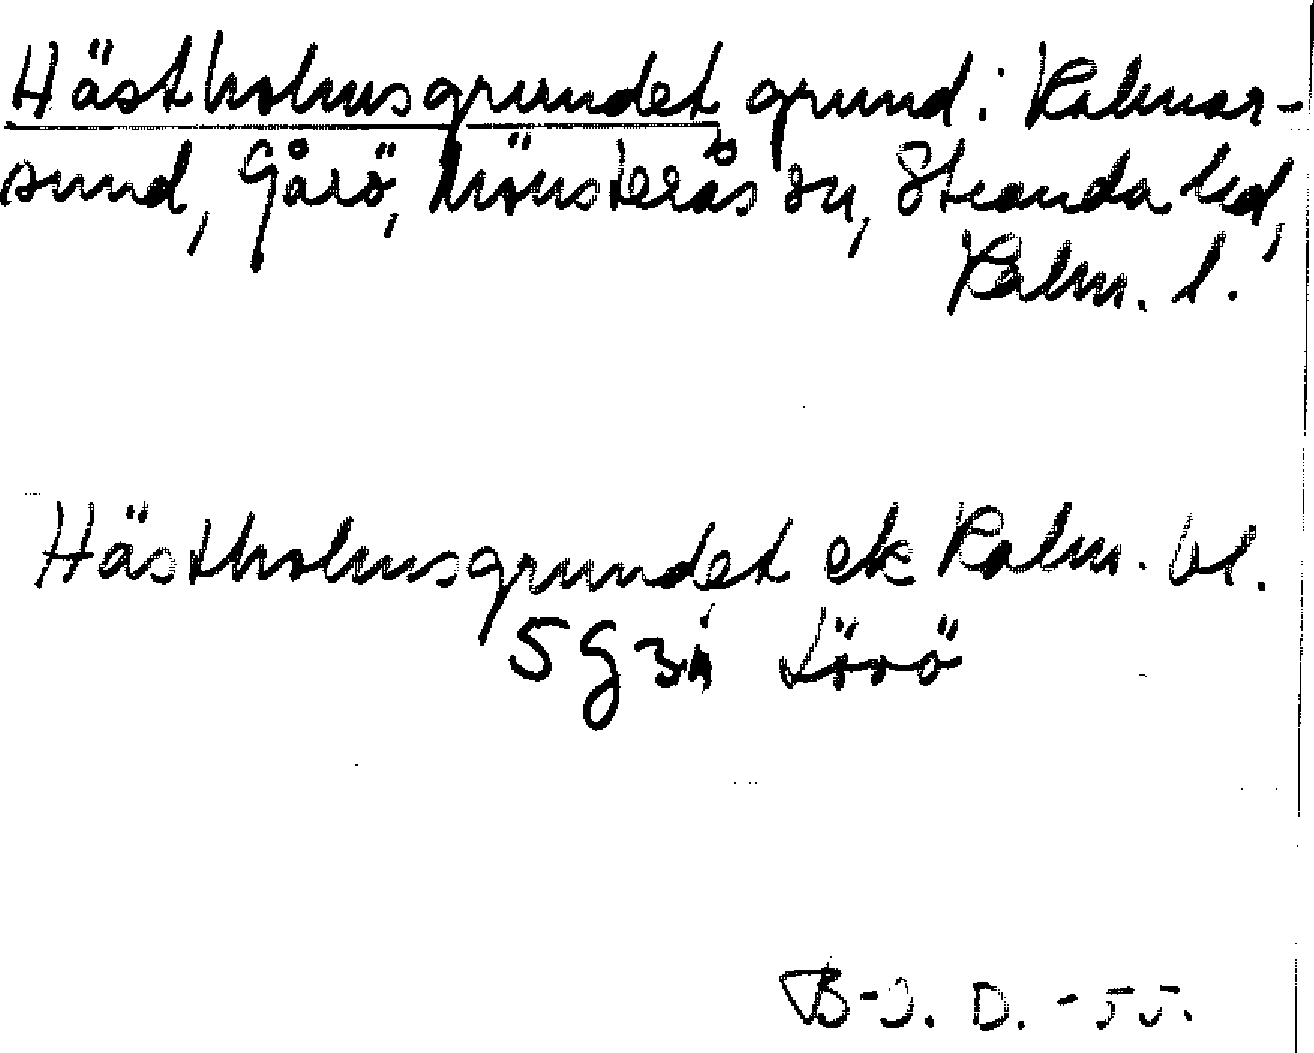 Hästholmsgrundet grund: Kalmar-
sund, Gårö, Mönsterås sn, Stranda hd,
Kalm. l.
Hästholmsgrundet ek Kalm. bl.
5 G 3i Lövö
B-J. D. -55.